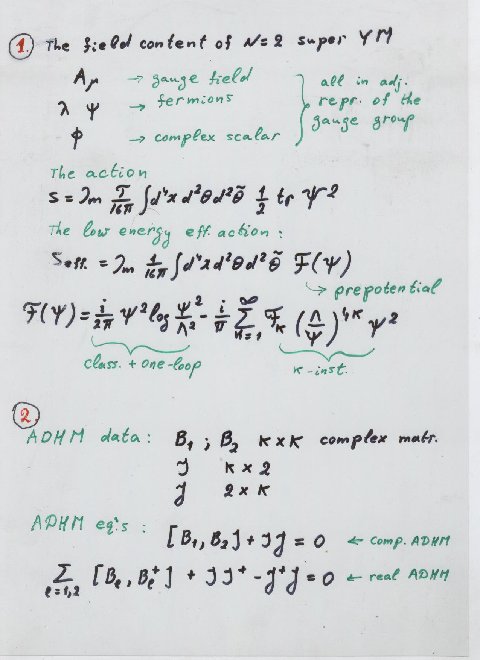 1. The field content of N=2 super YM
Aμ → gauge field
λ ψ → fermions
ϕ → complex scalar
all in adj. repr. of the gauge group
The action
S = Im τ/16π ∫d⁴x d²θ d²θ̃ 1/2 tr Ψ²
The low energy eff. action:
Seff. = Im 1/16π ∫d⁴x d²θ d²θ̃ F(Ψ)
↳ prepotential
F(Ψ) = i/2π Ψ² log Ψ²/Λ² - i/π ∑_{k=1}^∞ F_k (Λ/Ψ)^{4k} Ψ²
class. + one-loop
k-inst.
2.
ADHM data: B₁ ; B₂ k×k complex matr.
I k × 2
J 2 × k
ADHM eq's:
[B₁, B₂] + IJ = 0 ← comp. ADHM
∑_{ℓ=1,2} [B_ℓ, B_ℓ⁺] + II⁺ - J⁺J = 0 ← real ADHM